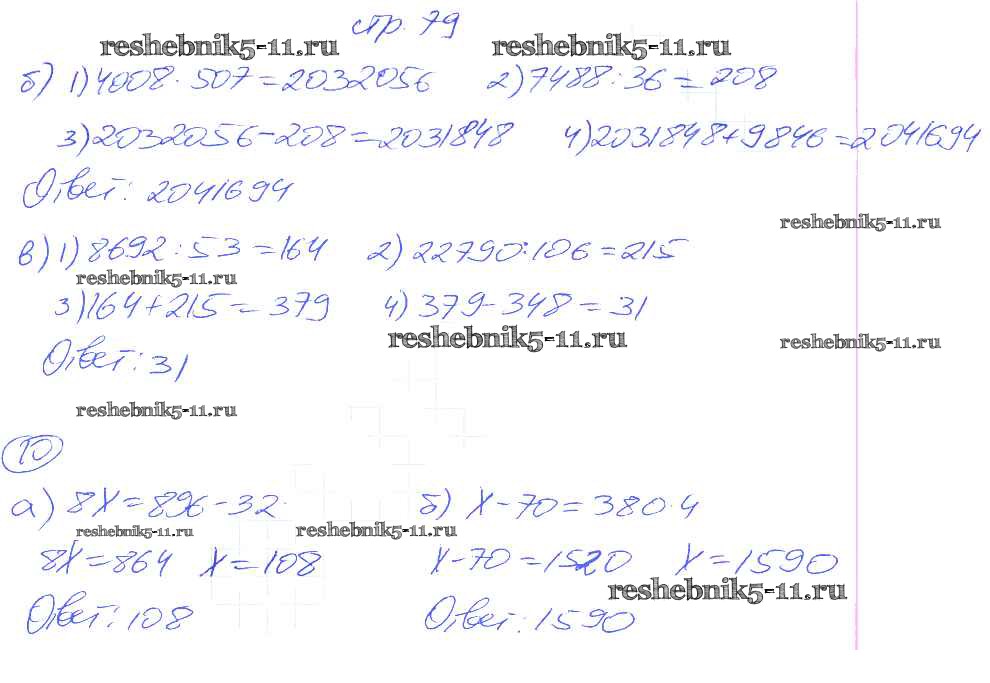 стр. 79
reshebnik5-11.ru reshebnik5-11.ru
б) 1) 4008 · 507 = 2032056 2) 7488 : 36 = 208
3) 2032056 - 208 = 2031848 4) 2031848 + 9846 = 2041694
Ответ: 2041694
reshebnik5-11.ru
в) 1) 8692 : 53 = 164 2) 22790 : 106 = 215
reshebnik5-11.ru
3) 164 + 215 = 379 4) 379 - 348 = 31
reshebnik5-11.ru reshebnik5-11.ru
Ответ: 31
reshebnik5-11.ru
10
а) 8x = 896 - 32 б) x - 70 = 380 · 4
reshebnik5-11.ru reshebnik5-11.ru
8x = 864 x = 108 x - 70 = 1520 x = 1590
reshebnik5-11.ru
Ответ: 108 Ответ: 1590